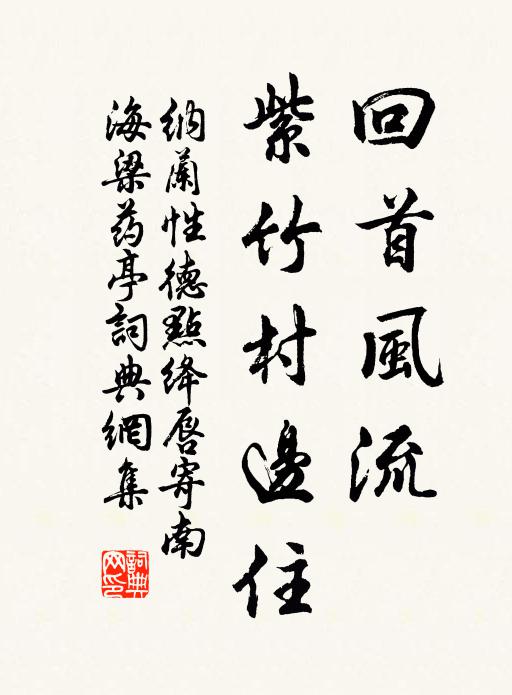 回首風流
紫竹村邊住
納蘭性德點絳唇寄南
海梁药亭詞典網集
詞典网印